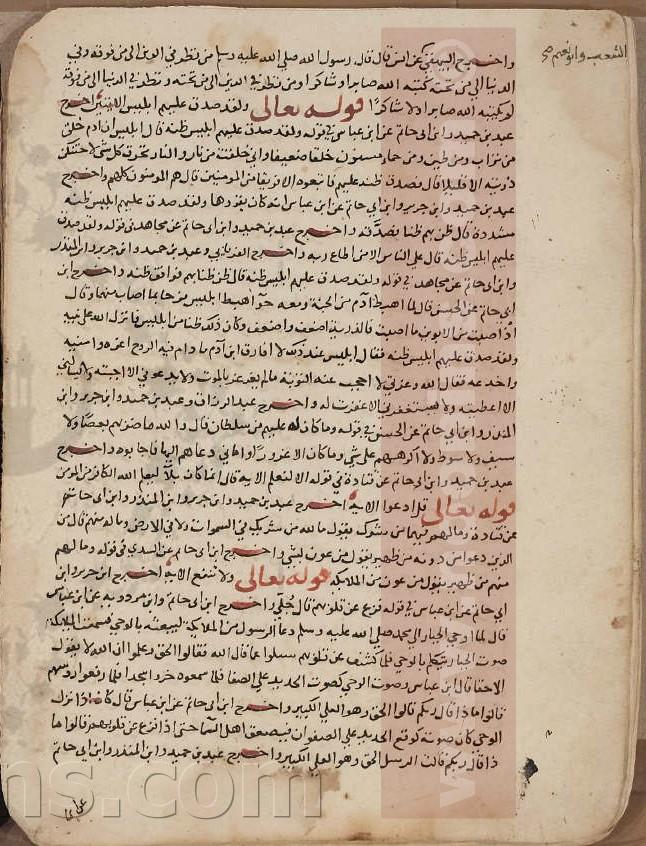 واخرج البيهقي عن انس قال قال رسول الله صلى الله عليه وسلم من نظر في الدين الى من فوقه وفي
الدنيا الى من تحته كتبه الله صابرا وشاكرا ومن نظر في الدين الى من تحته ونظر في الدنيا الى من فوقه
لم يكتبه الله صابرا ولا شاكرا قوله تعالى ولقد صدق عليهم ابليس الايتين اخرج
عبد بن حميد وابن ابي حاتم عن ابن عباس في قوله ولقد صدق عليهم ابليس ظنه قال ابليس ان ادم خلق
من تراب ومن طين ومن حمأ مسنون خلقا ضعيفا واني خلقت من نار والنار تحرق كل شي لاحتنكن
ذريته الا قليلا قال فصدق ظنه عليهم فاتبعوه الا فريقا من المومنين قال هم المومنون كلهم واخرج
عبد بن حميد وابن جرير وابن ابي حاتم عن ابن عباس انه كان يقروها ولقد صدق عليهم ابليس ظنه
مشددة قال ظن بهم ظنا فصدقه واخرج عبد بن حميد وابن ابي حاتم عن مجاهد في قوله ولقد صدق
عليهم ابليس ظنه قال على الناس الا من اطاع ربه واخرج الفريابي وعبد بن حميد وابن جرير وابن المنذر
وابن ابي حاتم عن مجاهد في قوله ولقد صدق عليهم ابليس ظنه قال ظن ظنا بهم فوافق ظنه واخرج ابن
ابي حاتم عن الحسن قال لما اهبط ادم من الجنة ومعه حوا هبط ابليس فرحا بما اصاب منهما وقال
اذ اصبت من الابوين ما اصبت فالذرية اضعف واضعف وكان ذلك ظنا من ابليس فانزل الله على نبيه
ولقد صدق عليهم ابليس ظنه فقال ابليس عند ذلك لا افارق ابن آدم ما دام فيه الروح اعده وامنيه
واخدعه فقال الله وعزتي لا احجب عنه التوبة ما لم يغرغر بالموت ولا يدعوني الا اجبته ولا يسالني
الا اعطيته ولا يستغفرني الا غفرت له واخرج عبد الرزاق وعبد بن حميد وابن جرير وابن
المنذر وابن ابي حاتم عن الحسن في قوله وما كان له عليهم من سلطان قال والله ما ضربهم بعصا ولا
سيف ولا سوط ولا اكرههم على شي وما كان الا غرورا واماني دعاهم اليها فاجابوه واخرج
عبد بن حميد وابن ابي حاتم عن قتادة في قوله الا لنعلم الاية قال انما كان بلآ ليعلم الله الكافر من المومن
قوله تعالى قل ادعوا الاية اخرج عبد بن حميد وابن جرير وابن المنذر وابن ابي حاتم
عن قتادة وما لهم فيهما من شرك يقول ما لله من شريك في السموات ولا في الارض وما له منهم قال من
الذين دعوا من دونه من ظهير يقول من عون لشي واخرج ابن ابي حاتم عن السدي في قوله وما لهم
منهم من ظهير يقول من عون من الملايكة قوله تعالى ولا تنفع الاية اخرج ابن جرير وابن
ابي حاتم عن ابن عباس في قوله فزع عن قلوبهم قال جلي واخرج ابن ابي حاتم وابن مردويه عن ابن عباس
قال لما اوحى الجبار الى محمد صلى الله عليه وسلم دعا الرسول من الملايكة ليبعثه بالوحي فسمعت الملايكة
صوت الجبار يتكلم بالوحي فلما كشف عن قلوبهم سيلوا عما قال الله فقالوا الحق وعلموا ان الله لا يقول
الا حقا قال ابن عباس وصوت الوحي كصوت الحديد على الصفا فلما سمعوه خروا سجدا فلما رفعوا روسهم
قالوا ماذا قال ربكم قالوا الحق وهو العلي الكبير واخرج ابن ابي حاتم عن ابن عباس قال كان اذا نزل
الوحي كان صوته كوقع الحديد على الصفوان فيصعق اهل السما حتى اذا فزع عن قلوبهم قالوا ما
ذا قال ربكم قالت الرسل الحق وهو العلي الكبير واخرج عبد بن حميد وابن المنذر وابن ابي حاتم
الشعب وابو نعيم صح
ns.com